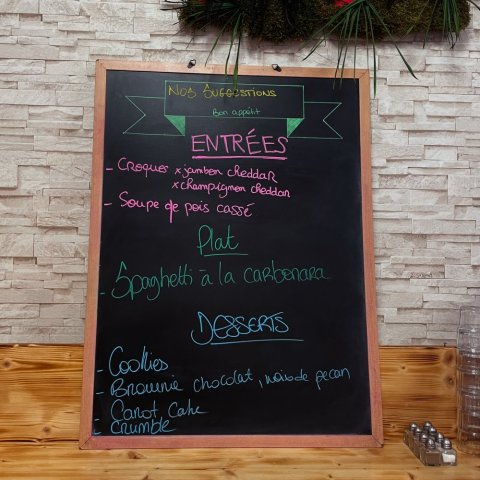 Nos Suggestions
Bon appétit
ENTRÉES
- Croques x jambon cheddar
x champignon cheddar
- Soupe de pois cassé
Plat
- Spaghetti à la carbonara
Desserts
- Cookies
- Brownie chocolat, noix de pecan
- Carot Cake
- Crumble